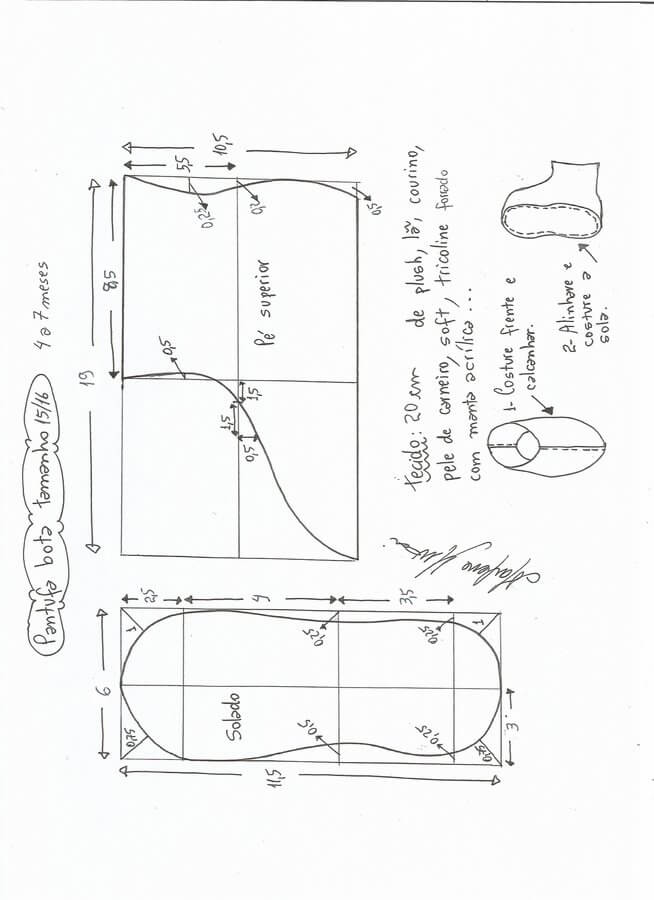 Pantufa bota tamanho 15/16 4 a 7 meses
19
8,5
5,5
10,5
0,25
0,2
0,5
0,5
1,5
1,5
0,5
Pé superior
tecido: 20 cm de plush, lã, courino,
pele de carneiro, soft, tricoline forrado
com manta acrílica...
1- Costure frente e
calcanhar.
2- Alinhave e
costure a
sola.
6
2,5
4
3,5
11,5
3
1
0,75
0,25
0,25
1
0,5
0,25
0,75
Solado